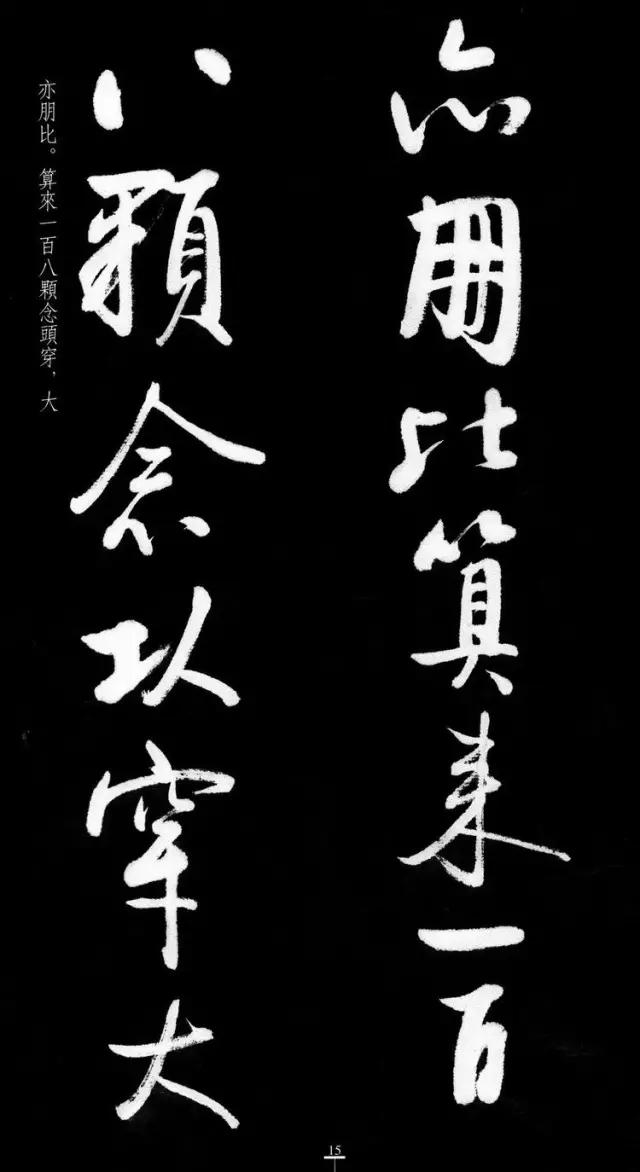 亦朋比算来一百
八顆念頭穿大
亦朋比。算來一百八顆念頭穿，大
15